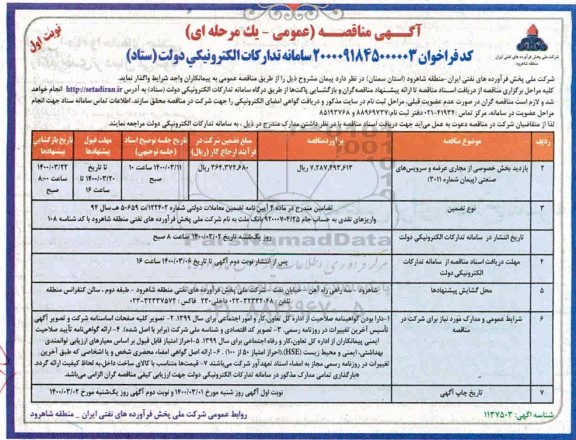 آگهی مناقصه (عمومی - یك مرحله ای)
نوبت اول
کد فراخوان ۲۰۰۰۰۹۱۸۴۵۰۰۰۰۰۳ سامانه تدارکات الکترونیکي دولت (ستاد)
شرکت ملی پخش فرآورده های نفتی ایران
منطقه شاهرود
شرکت ملی پخش فرآورده های نفتی ایران -منطقه شاهرود (استان سمنان) در نظر دارد پیمان مشروح ذیل را از طریق مناقصه عمومی به پیمانکاران واجد شرایط واگذار نماید.
کلیه مراحل برگزاری مناقصه از دریافت اسناد مناقصه تا ارائه پیشنهاد مناقصه‌گران و بازگشایی پاکت‌ها از طریق درگاه سامانه تدارکات الکترونیکی دولت (ستاد) به آدرس http://setadiran.ir انجام خواهد
شد و لازم است مناقصه گران در صورت عدم عضویت قبلی، مراحل ثبت نام در سایت مذکور و دریافت گواهی امضای الکترونیکی را جهت شرکت در مناقصه محقق سازند. اطلاعات تماس سامانه ستاد جهت انجام
مراحل عضویت در سامانه، مرکز تماس: ۴۱۹۳۴-۰۲۱ دفتر ثبت نام: ۸۸۹۶۹۷۳۷ و ۸۵۱۹۳۷۶۸
لذا از متقاضیان شرکت در مناقصه دعوت به عمل می‌آید جهت دریافت اسناد مناقصه با در نظر داشتن مدارک مندرج در ذیل ، به سامانه تدارکات الکترونیکی دولت مراجعه نمایند.
ردیف موضوع مناقصه برآورد مناقصه مبلغ تضمین شرکت در فرآیند ارجاع کار (ریال) تاریخ جلسه توضیح اسناد (جلسه توجیهی) مهلت قبول پیشنهادها تاریخ بازگشایی پیشنهادها
۲ بازدید بخش خصوصی از مجاری عرضه و سرویس‌های صنعتی (پیمان شماره ۳۰۱۱) ۷.۲۸۷.۴۹۳.۶۱۳ ریال ۳۶۴.۳۷۴.۶۸۰ ریال ۱۴۰۰/۰۳/۱۱ ساعت ۱۰ صبح تا تاریخ ۱۴۰۰/۰۳/۲۰ تا ساعت ۱۶ ۱۴۰۰/۰۳/۲۲ ساعت ۸:۰۰ صبح
۳ نوع تضمین تضامین مندرج در ماده ۴ آیین نامه تضمین معاملات دولتی شماره ۱۲۳۴۰۲/ت ۵۰۶۵۹ هـ سال ۹۴
واریزهای نقدی به حساب جام بانک ملت به نام شرکت ملی پخش فرآورده های نفتی منطقه شاهرود با کد شناسه ۱۰۸
تاریخ انتشار در سامانه تدارکات الکترونیکی دولت روز یکشنبه تاریخ ۱۴۰۰/۰۳/۰۲ ساعت ۸ صبح
۴ مهلت دریافت اسناد مناقصه از سامانه تدارکات الکترونیکی دولت پس از انتشار نوبت دوم آگهی تا تاریخ ۱۴۰۰/۰۳/۰۶ ساعت ۱۶
۵ محل گشایش پیشنهادها شاهرود - سه راهی راه آهن - خیابان نفت - شرکت ملی پخش فرآورده های نفتی منطقه شاهرود - طبقه دوم - سالن کنفرانس منطقه
۶ شرایط عمومی و مدارک مورد نیاز برای شرکت در مناقصه ۱-دارا بودن گواهینامه صلاحیت از اداره کل تعاون،کار و امور اجتماعی برای سال ۱۳۹۹. ۲- تصویر کلیه صفحات اساسنامه شرکت و تصویر آگهی
تأسیس آخرین تغییرات در روزنامه رسمی. ۳- تصویر کد اقتصادی و شناسه ملی شرکت (برابر با اصل شده). ۴-ارائه گواهی‌نامه تأیید صلاحیت
ایمنی پیمانکاران از اداره کل تعاون،کار و رفاه اجتماعی برای سال ۱۳۹۹. ۵-احراز امتیاز قابل قبول بر اساس معیارهای ارزیابی توانمندی
بهداشتی، ایمنی و محیط زیست (HSE).(احراز امتیاز ۵۰ از ۱۰۰). ۶- ارائه اصل گواهی امضاء محضری شخص و یا اشخاصی که طبق آخرین
تغییرات در روزنامه رسمی مجاز به امضاء اسناد تعهدآور شرکت می‌باشند ۷- قیمت‌ها متناسب با کالای ساخت داخل،به لحاظ کیفیت ارائه گردد.
*بارگذاری تمامی مدارک مذکور در سامانه تدارکات الکترونیکی دولت جهت ارزیابی کیفی مناقصه گران الزامی می‌باشد.
۷ تاریخ چاپ آگهی نوبت اول آگهی روز شنبه مورخ ۱۴۰۰/۰۳/۰۱ و نوبت دوم آگهی روز یکشنبه مورخ ۱۴۰۰/۰۳/۰۲
شناسه آگهی: ۱۱۳۷۵۰۳
روابط عمومی شرکت ملی پخش فرآورده های نفتی ایران _ منطقه شاهرود
ParsNamadData